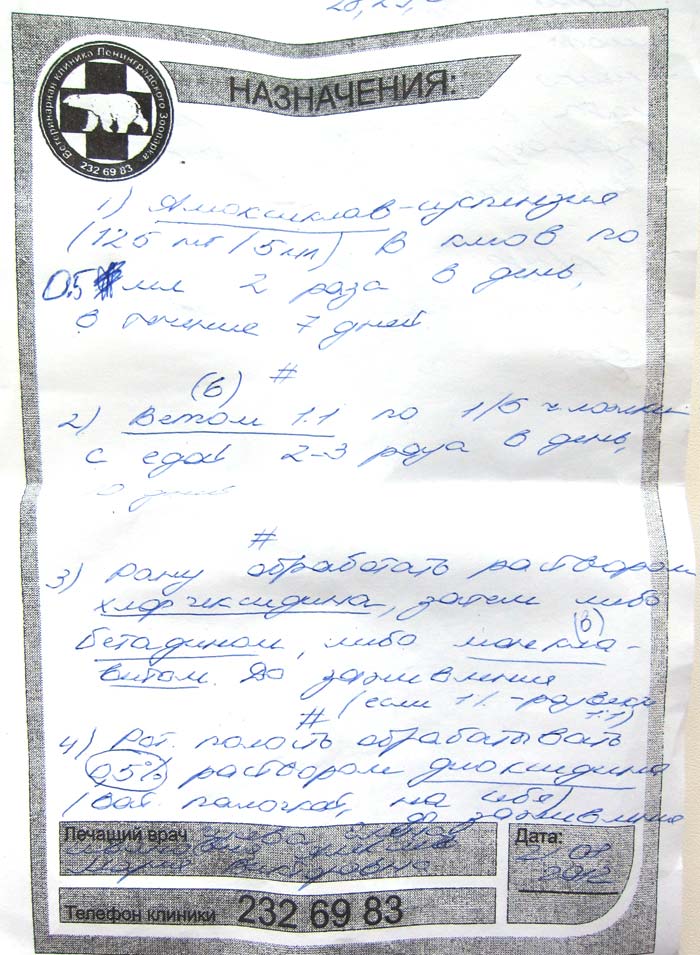 28,29,
Ветеринарная клиника Ленинградского Зоопарка
232 69 83
НАЗНАЧЕНИЯ:
1) Амоксиклав-суспензия
(125 мг/5мл) В клюв по
0.5 мл 2 раза в день,
в течение 7 дней
(в) #
2) Ветом 1.1 по 1/5 ч. ложки
с едой 2-3 раза в день,
#
3) Рану обработать раствором
хлоргексидина, затем либо
(в)
бетадином, либо монкла-
витом. До заживления
(если 1% -развести
1:1)
#
4) Рот. полость обрабатывать
0,5% раствором диоксидина
(ват. палочкой, на себя)
до заживления
Лечащий врач
Викторовна
Дата:
2012
Телефон клиники 232 69 83